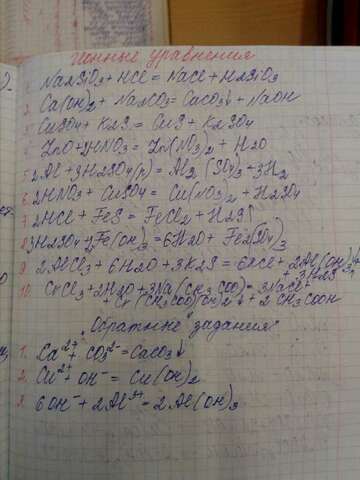 Ионные уравнения
1. Na2SiO3 + HCl = NaCl + H2SiO3
2. Ca(OH)2 + Na2CO3 = CaCO3↓ + NaOH
3. CuSO4 + K2S = CuS + K2SO4
4. ZnO + 2HNO3 = Zn(NO3)2 + H2O
5. 2Al + 3H2SO4(p) = Al2(SO4)3 + 3H2
6. 2HNO3 + CuSO4 = Cu(NO3)2 + H2SO4
7. 2HCl + FeS = FeCl2 + H2S↑
8. 3H2SO4 + 2Fe(OH)3 = 6H2O + Fe2(SO4)3
9. 2AlCl3 + 6H2O + 3K2S = 6KCl + 2Al(OH)3↓ + 3H2S↑
10. CrCl3 + 2H2O + 3Na(CH3COO) = 3NaCl + Cr(CH3COO)(OH)2↓ + 2CH3COOH
"Обратные" задания
1. Ca2+ + CO3 2- = CaCO3↓
2. Cu2+ + OH- = Cu(OH)2
3. 6OH- + 2Al3+ = 2Al(OH)3